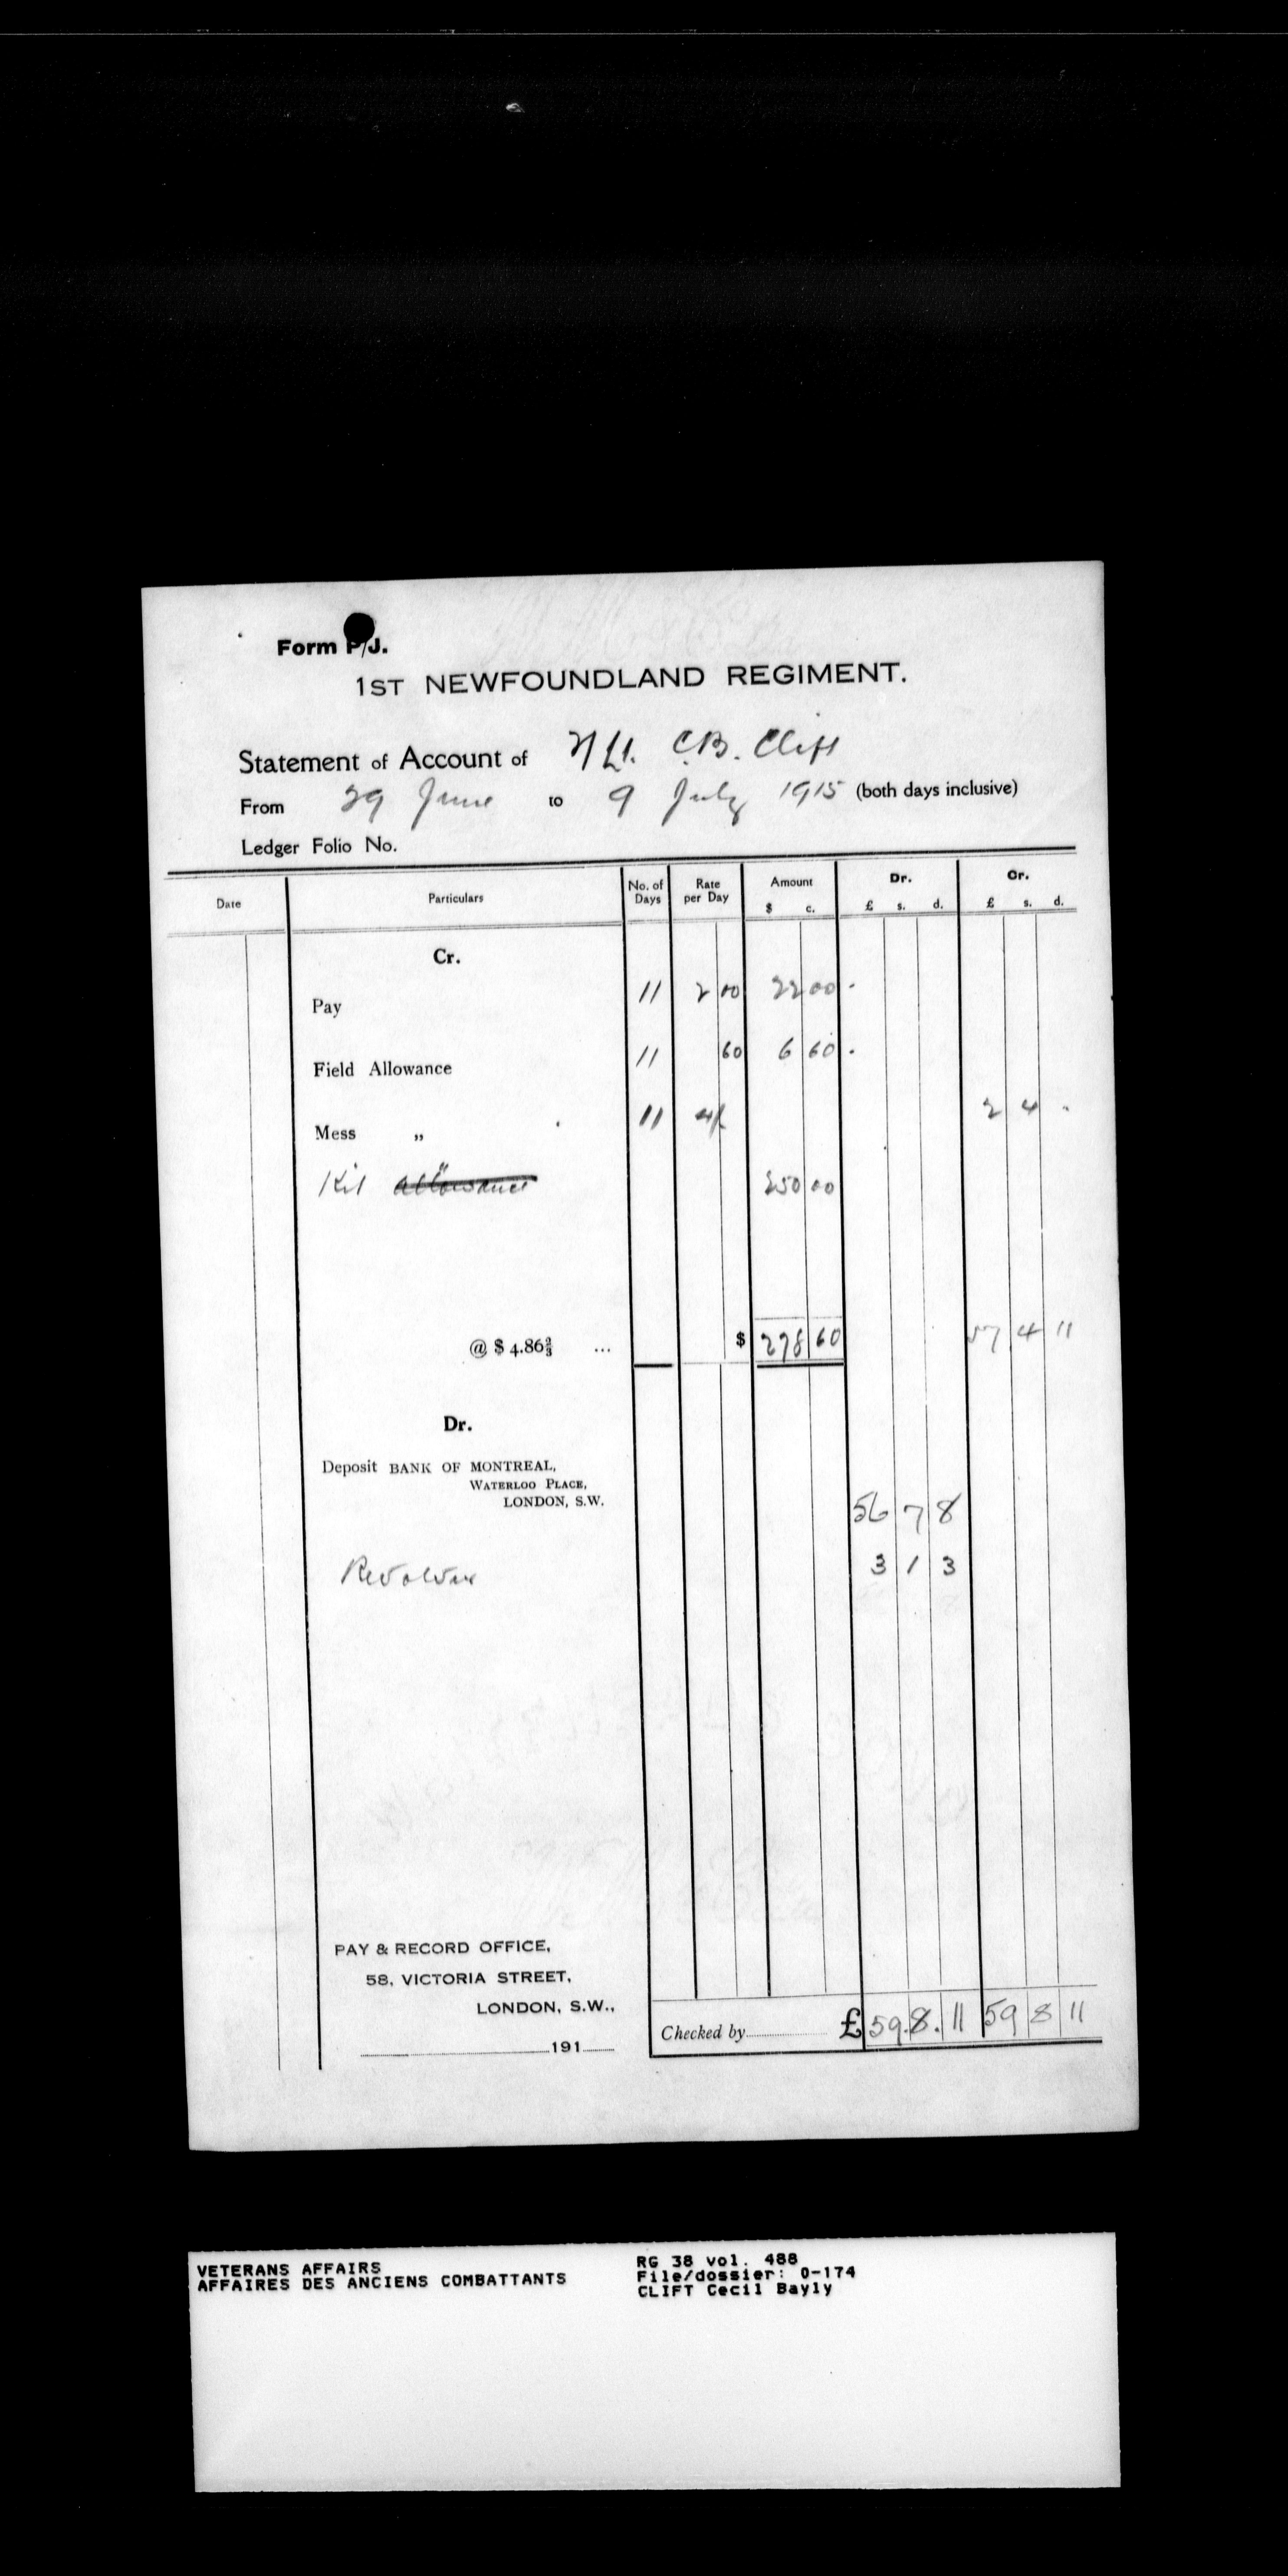 Form P/J.
1ST NEWFOUNDLAND REGIMENT.
Statement of Account of 2/Lt. C.B. Clift
From 29 June to 9 July 1915 (both days inclusive)
Ledger Folio No.
Date Particulars No. of Days Rate per Day Amount $ c. Dr. £ s. d. Cr. £ s. d.
Cr.
Pay 11 2 00 22 00
Field Allowance 11 60 6 60
Mess „ 11 4/ 2 4 -
Kit allowance " 250 00
@ $ 4.86⅔ ... $ 278 60 57 4 11
Dr.
Deposit BANK OF MONTREAL,
WATERLOO PLACE,
LONDON, S.W. 56 7 8
Revolver 3 1 3
PAY & RECORD OFFICE,
58, VICTORIA STREET,
LONDON, S.W.,
191
Checked by £ 59. 8. 11 59 8 11
VETERANS AFFAIRS
AFFAIRES DES ANCIENS COMBATTANTS
RG 38 vol. 488
File/dossier: 0-174
CLIFT Cecil Bayly